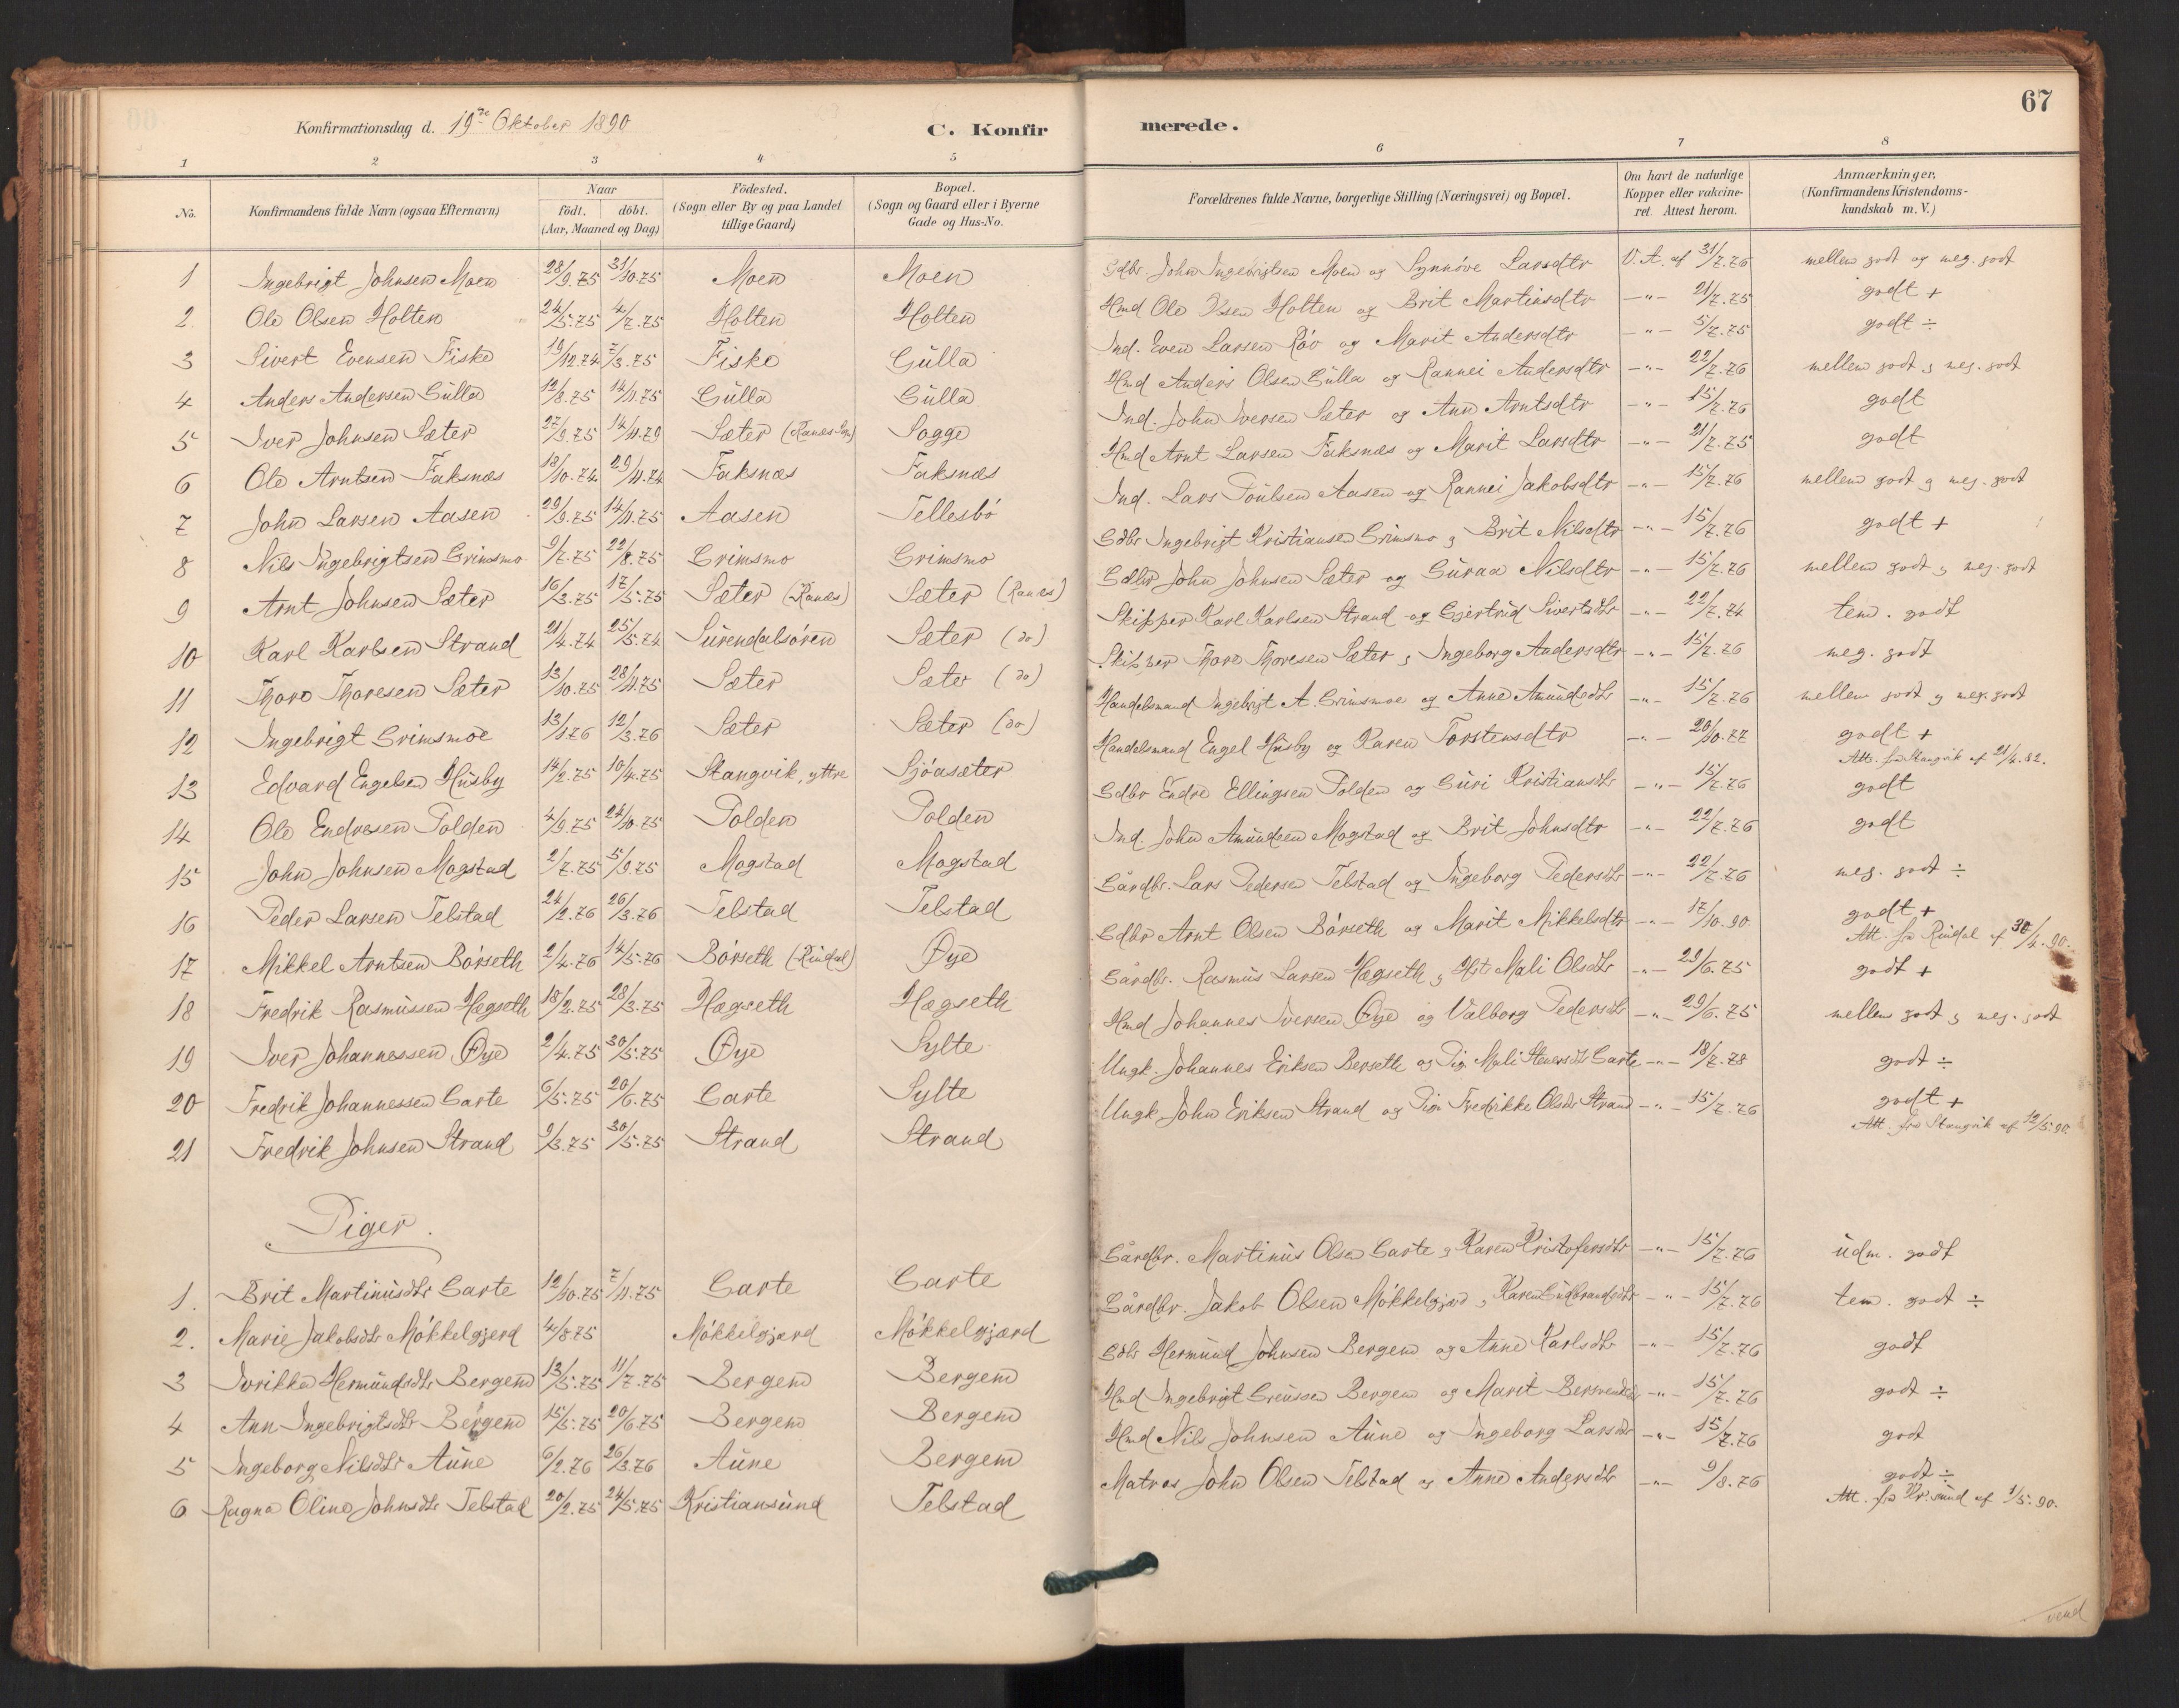 67
Konfirmationsdag d. 19de Oktober 1890 C. Konfir merede.
1 2 3 4 5 6 7 8
No. Konfirmandens fulde Navn (ogsaa Efternavn) Naar födt. döbt. (Aar, Maaned og Dag) Födested. (Sogn eller By og paa Landet tillige Gaard) Bopæl. (Sogn og Gaard eller i Byerne Gade og Hus-No. Forældrenes fulde Navne, borgerlige Stilling (Næringsvei) og Bopæl. Om havt de naturlige Kopper eller vakcineret. Attest herom. Anmærkninger, (Konfirmandens Kristendomskundskab m. V.)
1 Ingebrigt Johnsen Moen 28/9.75 31/10.75 Moen Moen Gdbr John Ingebrigtsen Moen og Synnöve Larsdtr V. A. af 31/7.76 mellem godt og meg. godt
2 Ole Olsen Holten 24/5.75 4/7.75 Holten Holten Hmd Ole Olsen Holten og Brit Martinsdtr -"- 21/7.75 godt +
3 Sivert Evensen Fiske 19/12.74 7/3.75 Fiske Gulla Ind. Even Larsen Röv og Marit Andersdtr -"- 5/7.75 godt ÷
4 Anders Andersen Gulla 12/8.75 14/11.75 Gulla Gulla Hmd Anders Olsen Gulla og Rannei Andersdtr -"- 22/7.76 mellem godt og meg. godt
5 Iver Johnsen Sæter 27/9.75 14/11.79 Sæter (Ranæs Sgn) Sogge Ind. John Iversen Sæter og Ann Arntsdtr -"- 15/7.76 godt
6 Ole Arntsen Faksnæs 18/10.74 29/11.74 Faksnæs Faksnæs Hmd Arnt Larsen Faksnæs og Marit Larsdtr -"- 21/7.75 godt
7 John Larsen Aasen 29/9.75 14/11.75 Aasen Tellesbö Ind. Lars Poulsen Aasen og Rannei Jakobsdtr -"- 15/7.76 mellem godt og meg. godt
8 Nils Ingebrigtsen Grimsmo 9/7.75 22/8.75 Grimsmo Grimsmo Gdbr Ingebrigt Kristiansen Grimsmo og Brit Nilsdtr -"- 15/7.76 godt +
9 Arnt Johnsen Sæter 16/3.75 17/5.75 Sæter (Ranæs) Sæter (Ranæs) Gdbr John Johnsen Sæter og Guraa Nilsdtr -"- 15/7.76 mellem godt og meg. godt
10 Karl Karlsen Strand 21/4.74 25/5.74 Surendalsören Sæter (do) Skipper Karl Karlsen Strand og Gjertrud Sivertsdtr -"- 22/7.74 tem. godt
11 Thore Thoresen Sæter 13/10.75 28/11.75 Sæter Sæter (do) Skipper Thore Thoresen Sæter og Ingeborg Andersdtr -"- 15/7.76 meg. godt
12 Ingebrigt Grimsmoe 13/1.76 12/3.76 Sæter Sæter (do) Handelsmand Ingebrigt A. Grimsmoe og Anne Amundsdtr -"- 15/7.76 mellem godt og meg. godt
13 Edvard Engelsen Husby 14/2.75 10/4.75 Stangvik, yttre Sjöasæter Handelsmand Engel Husby og Karen Torstensdtr -"- 20/10.77 godt +
Att. fra Stangvik af 21/4.82.
14 Ole Endresen Polden 4/9.75 24/10.75 Polden Polden Gdbr Endre Ellingsen Polden og Guri Kristiansdtr -"- 15/7.76 godt
15 John Johnsen Mogstad 2/7.75 5/9.75 Mogstad Mogstad Ind. John Amundsen Mogstad og Brit Johnsdtr -"- 22/7.76 godt
16 Peder Larsen Telstad 24/2.76 26/3.76 Telstad Telstad Gårdbr. Lars Pedersen Telstad og Ingeborg Pedersdtr -"- 22/7.76 meg. godt ÷
17 Mikkel Arntsen Börseth 2/4.76 14/5.76 Börseth (Rindal) Øye Gdbr Arnt Olsen Börseth og Marit Mikkelsdtr -"- 17/10.90 godt +
Att. fra Rindal af 30/4.90.
18 Fredrik Rasmussen Hægseth 18/2.75 28/3.75 Hægseth Hægseth Gårdbr. Rasmus Larsen Hægseth og Hst. Mali Olsdtr -"- 29/6.75 godt +
19 Iver Johannessen Øye 2/4.75 30/5.75 Øye Sylte Hmd Johannes Iversen Øye og Valborg Pedersdtr -"- 29/6.75 mellem godt og meg. godt
20 Fredrik Johannessen Garte 6/5.75 20/6.75 Garte Sylte Ungk. Johannes Eriksen Berseth og Pig. Mali Stenersdtr Garte -"- 18/7.78 godt ÷
21 Fredrik Johnsen Strand 9/3.75 30/5.75 Strand Strand Ungk. John Eriksen Strand og Pige Fredrikke Olsdtr Strand -"- 15/7.76 godt +
Att. fra Stangvik af 12/5.90.
Piger.
1. Brit Martinusdtr Garte 12/10.75 7/11.75 Garte Garte Gårdbr. Martinus Olsen Garte og Karen Kristofersdtr -"- 15/7.76 udm. godt
2. Marie Jakobsdtr Mökkelgjerd 4/8.75 Mökkelgjærd Mökkelgjærd Gårdbr. Jakob Olsen Mökkelgjærd og Karen Gudbrandsdtr -"- 15/7.76 tem. godt ÷
3 Ivrikke Hermundsdtr Bergem 13/5.75 11/7.75 Bergem Bergem Gdbr Hermund Johnsen Bergem og Anne Karlsdtr -"- 15/7.76 godt
4 Ann Ingebrigtsdtr Bergem 15/5.75 20/6.75 Bergem Bergem Hmd Ingebrigt Bergem og Marit -"- 15/7.76 godt ÷
5 Ingeborg Nilsdtr Aune 6/2.76 26/3.76 Aune Bergem Hmd Nils Johnsen Aune og Ingeborg Larsdtr -"- 15/7.76 godt
6 Ragna Oline Johnsdtr Telstad 20/2.75 24/5.75 Kristiansund Telstad Matros John Olsen Telstad og Anne Andersdtr -"- 9/8.76 godt ÷
Att. fra Kr.sund af 1/5.90.
vend